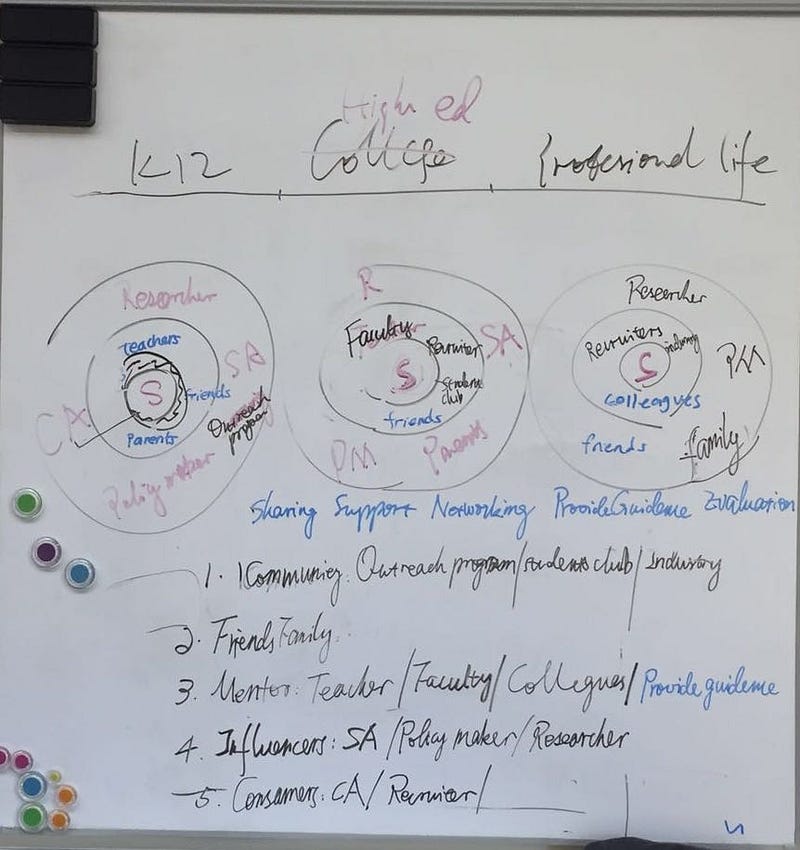 High ed
K12 College Profesional life
Researcher
Teachers
S
friends
SA
Outreach program
CA
Parents
Policy maker
R
Faculty
Recruiter
SA
S
Students club
friends
PM
Parents
Researcher
Recruiters
industry
S
PM
Colleagues
friends
family
Sharing Support Networking Provide Guideme Evaluation
1. Community: Outreach program/students club/industry
2. Friends Family.
3. Mentor: Teacher/Faculty/Collegues/Provide guideme
4. Influencers: SA/Policy maker/Researcher
5. Consamers: CA/Recruiter/